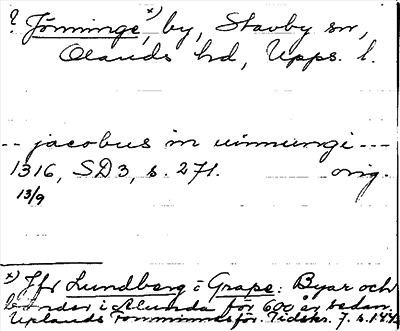 ? Jönninge x), by, Stavby sn,
Olands hd, Upps. l.
-- jacobus in uinnungi ---
1316, SD3, s. 271. orig.
13/9
x) Jfr Lundberg i Grape: Byar och
bönder i Alunda för 600 år sedan.
Uplands Fornminnesför. Tidskr. 7. s.